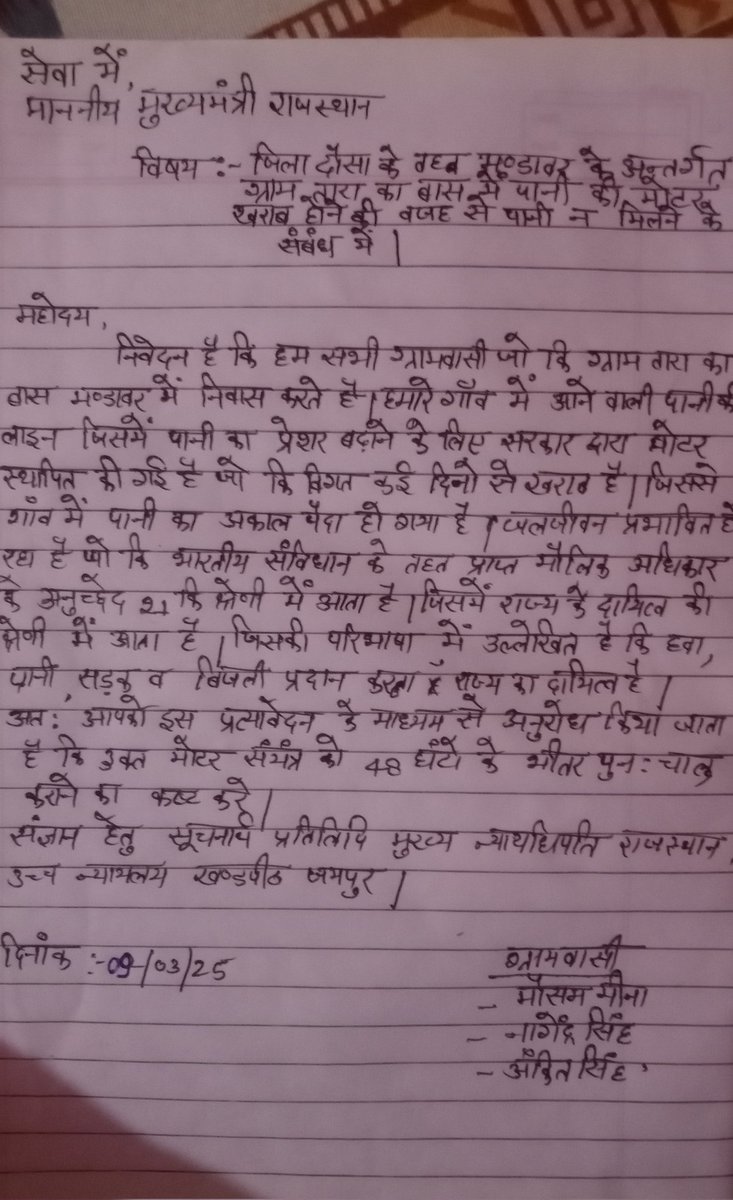 सेवा में,
माननीय मुख्यमंत्री राजस्थान
विषय :- जिला दौसा के तहत मण्डावर के अन्तर्गत
ग्राम तारा का बास में पानी की मोटर
खराब होने की वजह से पानी न मिलने के
संबंध में |
महोदय,
निवेदन है कि हम सभी ग्रामवासी जो कि ग्राम तारा का
बास मण्डावर में निवास करते है | हमारे गाँव में आने वाली पानी की
लाइन जिसमें पानी का प्रेशर बढ़ाने के लिए सरकार द्वारा मोटर
स्थापित की गई है जो कि विगत कई दिनो से खराब है | जिससे
गाँव में पानी का अकाल पैदा हो गया है | जलजीवन प्रभावित हो
रहा है जो कि भारतीय संविधान के तहत प्राप्त मौलिक अधिकार
के अनुच्छेद 21 कि श्रेणी में आता है | जिसमें राज्य के दायित्व की
श्रेणी में आता है | जिसकी परिभाषा में उल्लेखित है कि हवा,
पानी, सड़क व बिजली प्रदान करना राज्य का दायित्व है |
अत: आपको इस प्रत्यावेदन के माध्यम से अनुरोध किया जाता
है कि उक्त मोटर संयंत्र को 48 घंटो के भीतर पुन: चालु
कराने का कष्ट करे |
संज्ञान हेतु सूचनार्थ प्रतिलिपि मुख्य न्यायधिपति राजस्थान
उच्च न्यायलय खण्डपीठ जयपुर |
दिनांक :- 09/03/25
ग्रामवासी
- मौसम मीना
- नागेंद्र सिंह
- अंकित सिंह